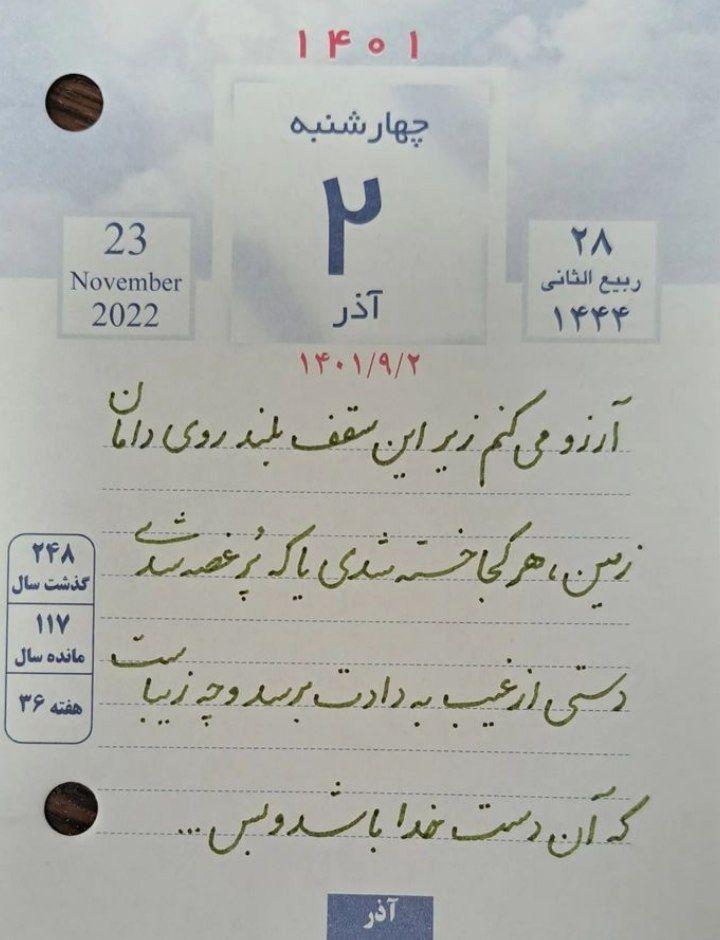 ۱۴۰۱
چهارشنبه
۲
آذر
23
November
2022
۲۸
ربیع الثانی
۱۴۴۴
۱۴۰۱/۹/۲
آرزو می کنم زیر این سقف بلند روی دامان
زمین، هر کجا خسته شدی یا که پُر غصه شدی
دستی از غیب به دادت برسد و چه زیباست
که آن دست خدا باشد و بس ...
۲۴۸
گذشت سال
۱۱۷
مانده سال
هفته ۳۶
آذر